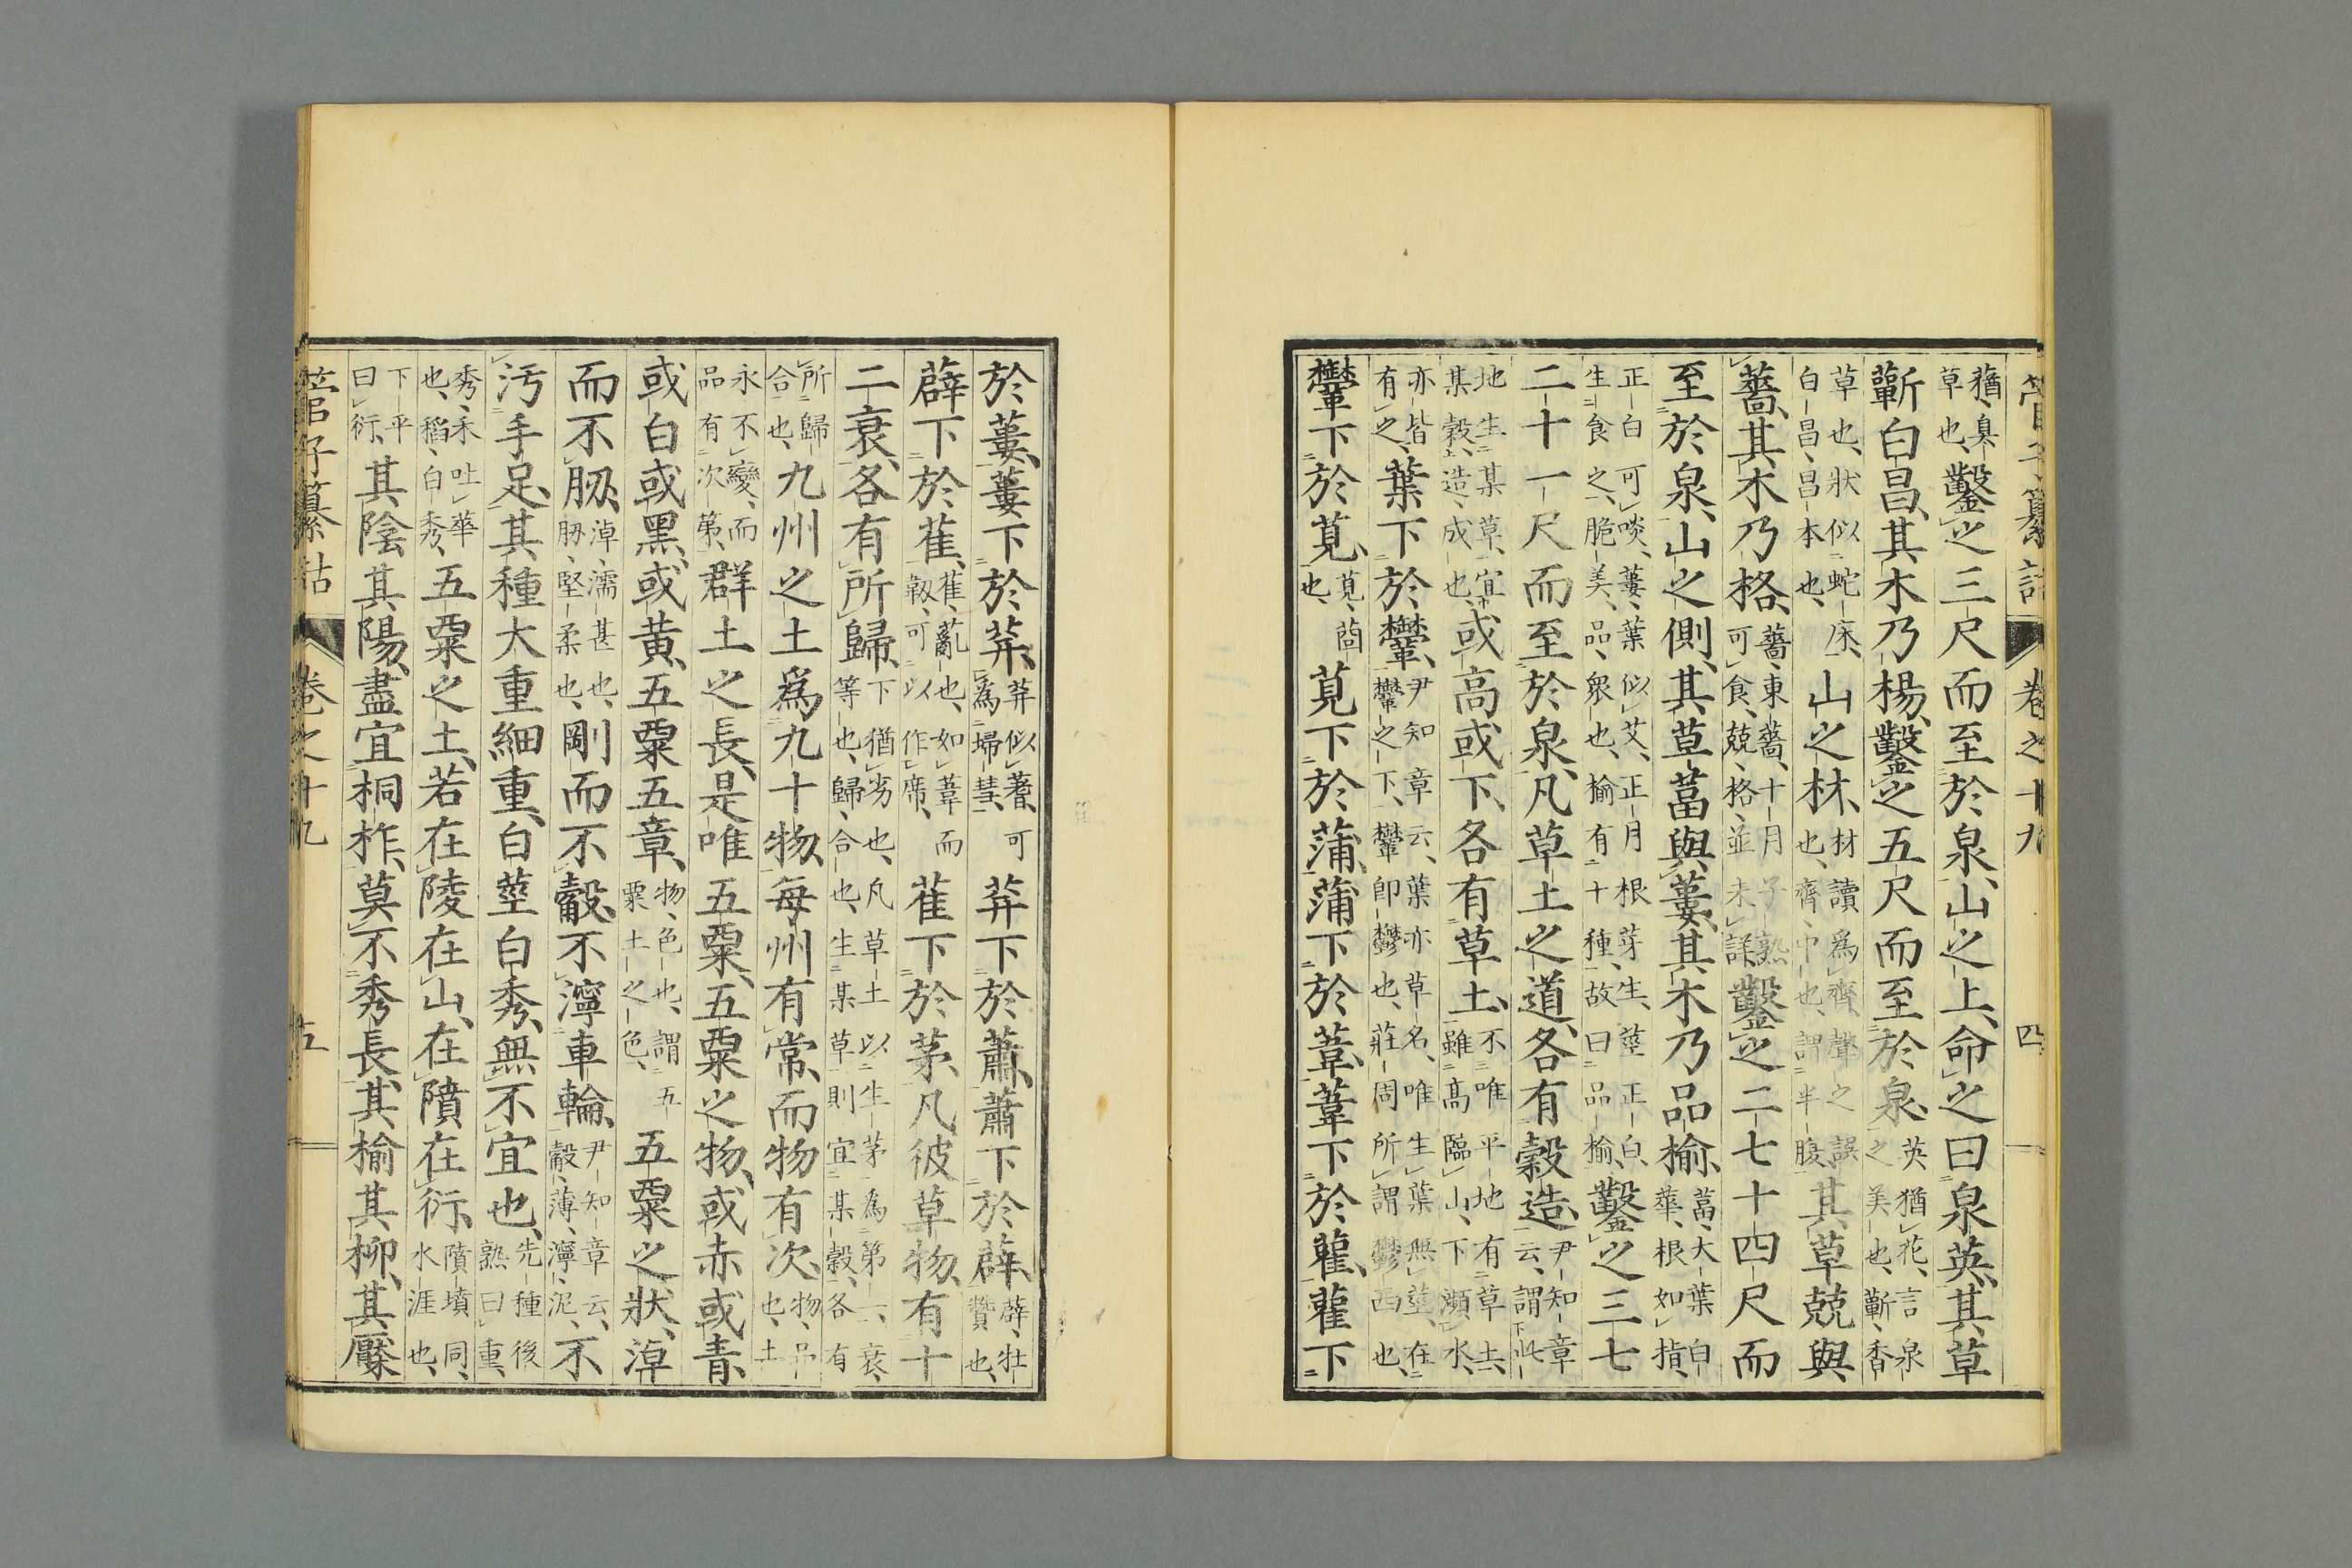 管子纂詁　卷之十九　四
猶臭草也鑿之三尺而至於泉山之上命之曰泉英其草
蘄白昌其木乃楊鑿之五尺而至於泉英猶花言泉之美也蘄香
草也狀似蛇床白昌昌本也山之材材讀爲齊聲之誤也齊中也謂半腹其草兢與
薔其木乃格薔東薔十月子熟可食兢格並未詳鑿之二七十四尺而
至於泉山之側其草葍與蔞其木乃品榆葍大葉白華根如指
正白可啖蔞葉似艾正月根芽生莖正白生食之脆美品衆也榆有十種故曰品榆鑿之三七
二十一尺而至於泉凡草土之道各有穀造尹知章云謂此
地生某草宜某穀造成也或高或下各有草土不唯平地有草土雖高臨山下瀕水
亦皆有之葉下於尹知章云葉亦草名唯生葉無莖在之下即鬱也莊周所謂鬱西也
下於莧莧下於蒲蒲下於葦葦下於雚雚下
於蔞蔞下於荓荓似蓍可爲埽彗荓下於蕭蕭下於薜薜牡贊也
薜下於萑萑薍也如葦而韌可以作席萑下於茅凡彼草物有十
二衰各有所歸下猶劣也凡草土以生茅爲第一衰等也歸合也生某草則宜某穀各有
所歸合也九州之土爲九十物每州有常而物有次物品也土
永不變而品有次第群土之長是唯五粟五粟之物或赤或青
或白或黑或黄五粟五章物色也謂五粟土之色五粟之狀淖
而不肕淖濡甚也肕堅柔也剛而不觳不濘車輪尹知章云觳薄濘泥不
汚手足其種大重細重白莖白秀無不宜也先種後熟曰重
秀禾吐華也稻白秀五粟之土若在陵在山在隫在衍隫墳同水涯也
下平曰衍其陰其陽盡宜桐柞莫不秀長其榆其柳其檿
管子纂詁　卷之十九　五